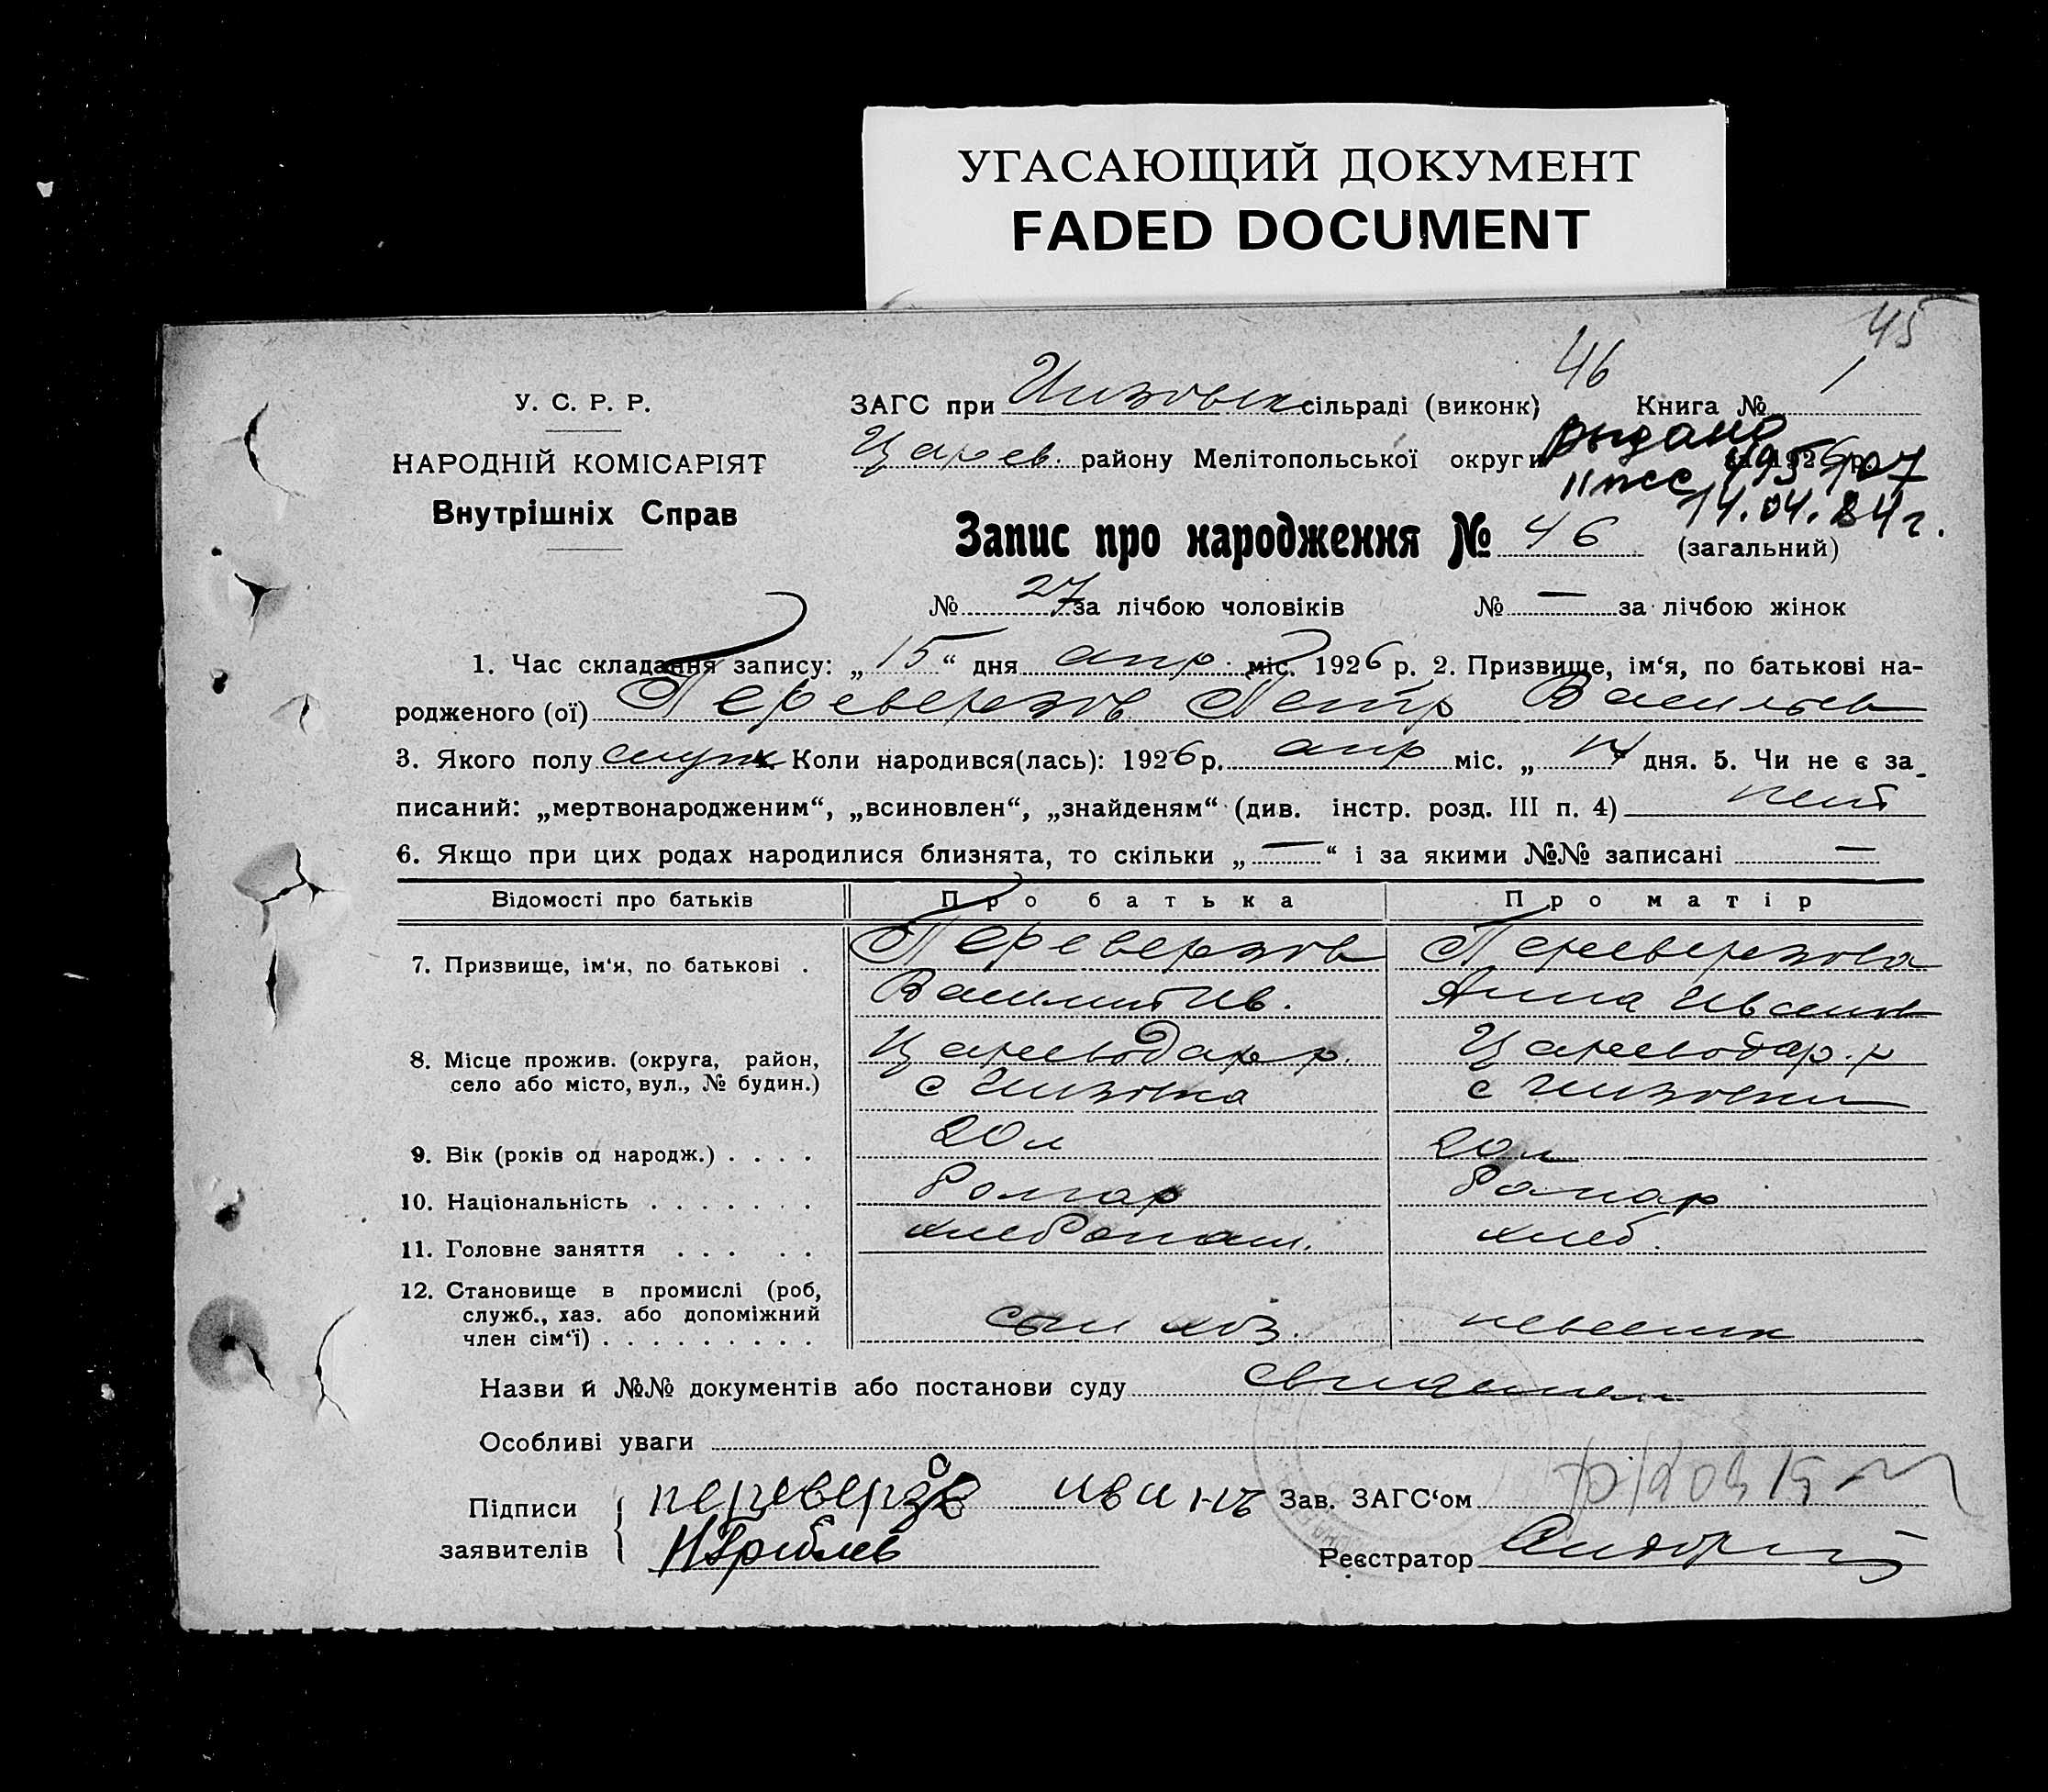 УГАСАЮЩИЙ ДОКУМЕНТ
FADED DOCUMENT
45
46
У. С. Р. Р.
ЗАГС при сільраді (виконк) Книга № 1
НАРОДНІЙ КОМІСАРІЯТ
Царев. району Мелітопольської округи 1926 р.
Внутрішніх Справ
выдано
14.04.84г.
Запис про народження № 46 (загальний)
№ 27 за лічбою чоловіків № — за лічбою жінок
1. Час складання запису: „ 15 “ дня апр. міс. 1926 р. 2. Призвище, ім‘я, по батькові на-
родженого (ої) Переверзов Петр Васильев
3. Якого полу муж 4. Коли народився(лась): 1926 р. апр міс. „ 14 дня. 5. Чи не є за-
писаний: „мертвонародженим“, „всиновлен“, „знайденям“ (див. інстр. розд. III п. 4) нет
6. Якщо при цих родах народилися близнята, то скільки „ — “ і за якими №№ записані —
Відомості про батьків Про батька Про матір
7. Призвище, ім‘я, по батькові . Переверзов Переверзова
Василий Ив. Анна
8. Місце прожив. (округа, район, Цареводар р. Цареводар. р
село або місто, вул., № будин.) с с
9. Вік (років од народж.) . . . . 20 л 20 л
10. Національність . . . . . . . болгар болгар
11. Головне заняття . . . . . хлебопаш. хлеб.
12. Становище в промислі (роб,
служб., хаз. або допоміжний
член сім‘ї) . . . . . . . . . сын хоз. невестк
Назви й №№ документів або постанови суду
Особливі уваги
Підписи переверзов Зав. ЗАГС‘ом
заявителів Реєстратор